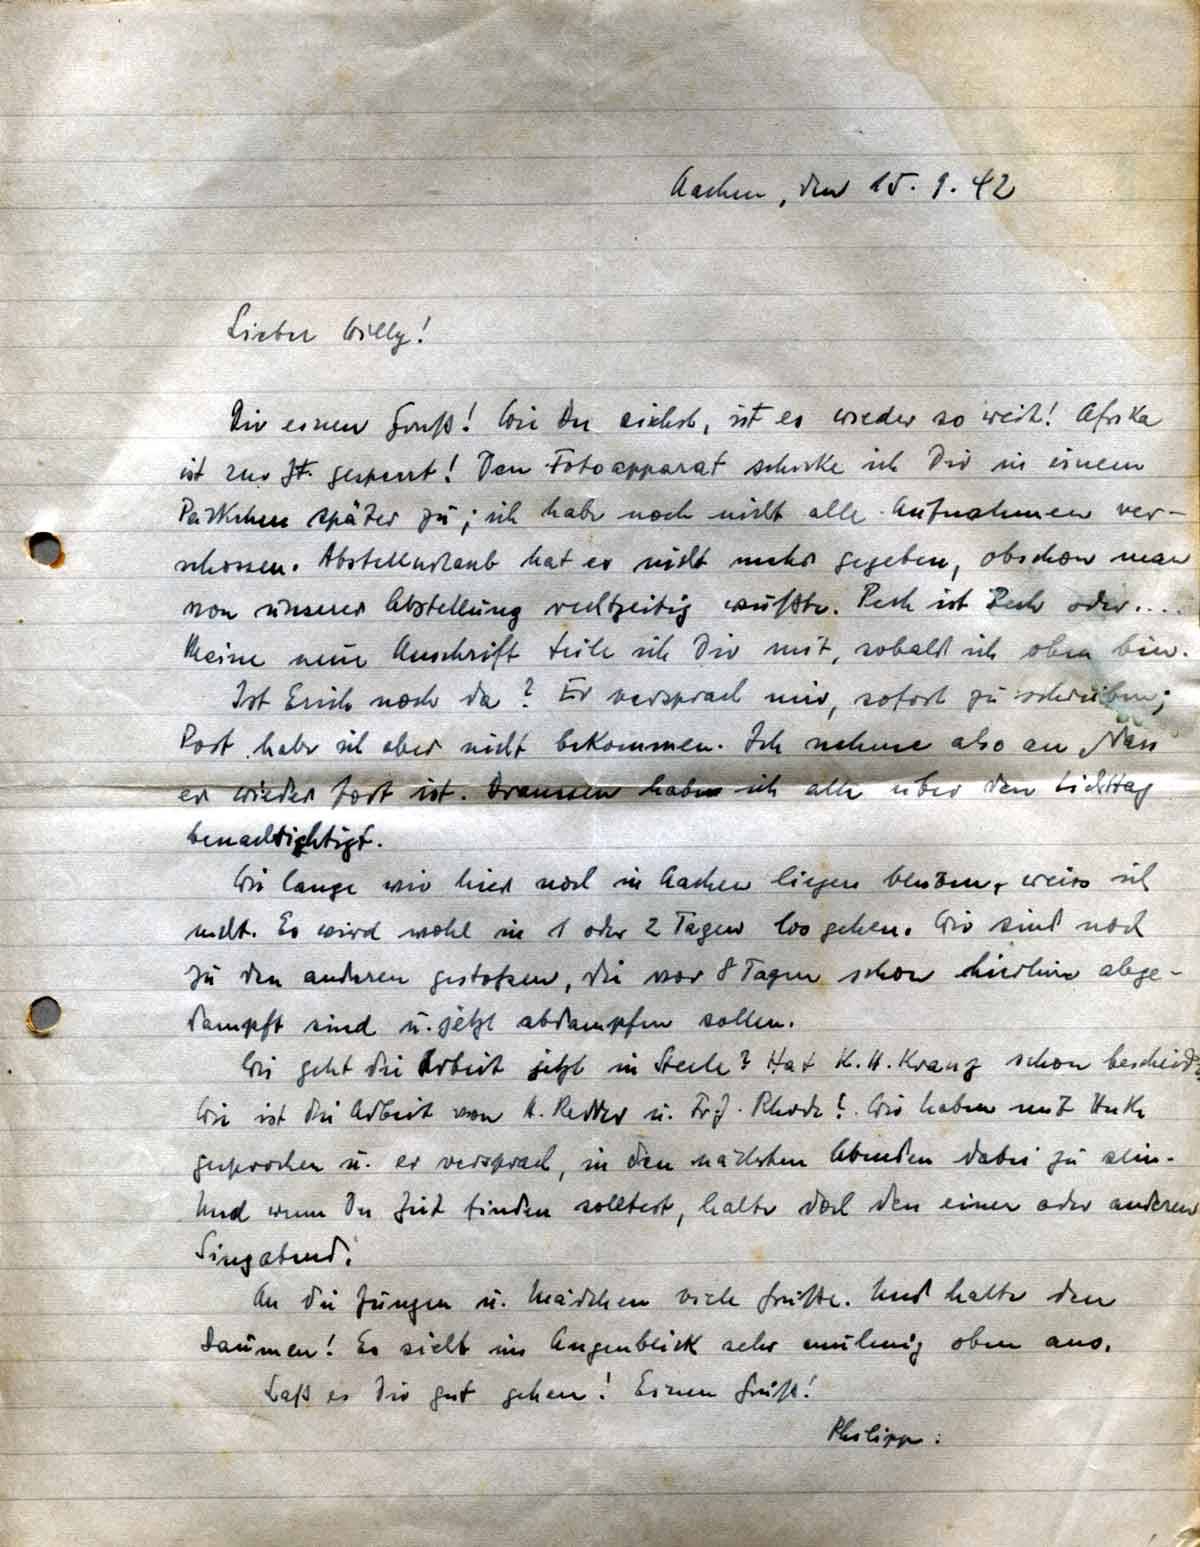 Aachen, den 15.9.42
Lieber Willy!
Dir einen Gruß! Wie Du siehst, ist es wieder so weit! Afrika
ist zur Zt. gesperrt! Den Fotoapparat schicke ich Dir in einem
Päckchen später zu; ich habe noch nicht alle Aufnahmen ver-
schossen. Abstellurlaub hat es nicht mehr gegeben, obschon man
von unserer Abstellung rechtzeitig wußte. Pech ist Pech oder....
Meine neue Anschrift teile ich Dir mit, sobald ich oben bin.
Ist Erich noch da? Er versprach mir, sofort zu schreiben;
Post habe ich aber nicht bekommen. Ich nehme also an, dass
er wieder fort ist. Draussen habe ich alle über den Lichttag
benachrichtigt.
Wie lange wir hier noch in Aachen liegen bleiben, weiss ich
nicht. Es wird wohl in 1 oder 2 Tagen los gehen. Wir sind noch
zu den anderen gestoßen, die vor 8 Tagen schon hierhin abge-
dampft sind u. jetzt abdampfen sollen.
Wie geht die Arbeit jetzt in Steele? Hat K.H. Kranz schon bescheid?
Wie ist die Arbeit von H. Redder u. Frz. Rhode? Wir haben mit
gesprochen u. er versprach, in den nächsten Abenden dabei zu sein.
Und wenn Du Zeit finden solltest, halte doch den einen oder anderen
Singabend.
An die Jungen u. Mädchen viele Grüße. Und halte den
Daumen! Es sieht im Augenblick sehr mulmig oben aus.
Laß es Dir gut gehen! Einen Gruß!
Philipp.